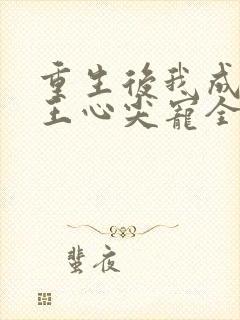 重生後我成
王心尖寵全
蜚夜